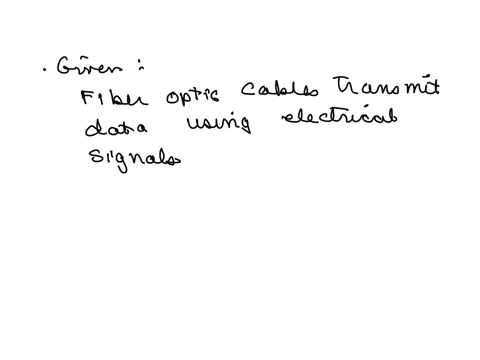 . Given :
Fiber optic cables transmit
data using electrical
signals